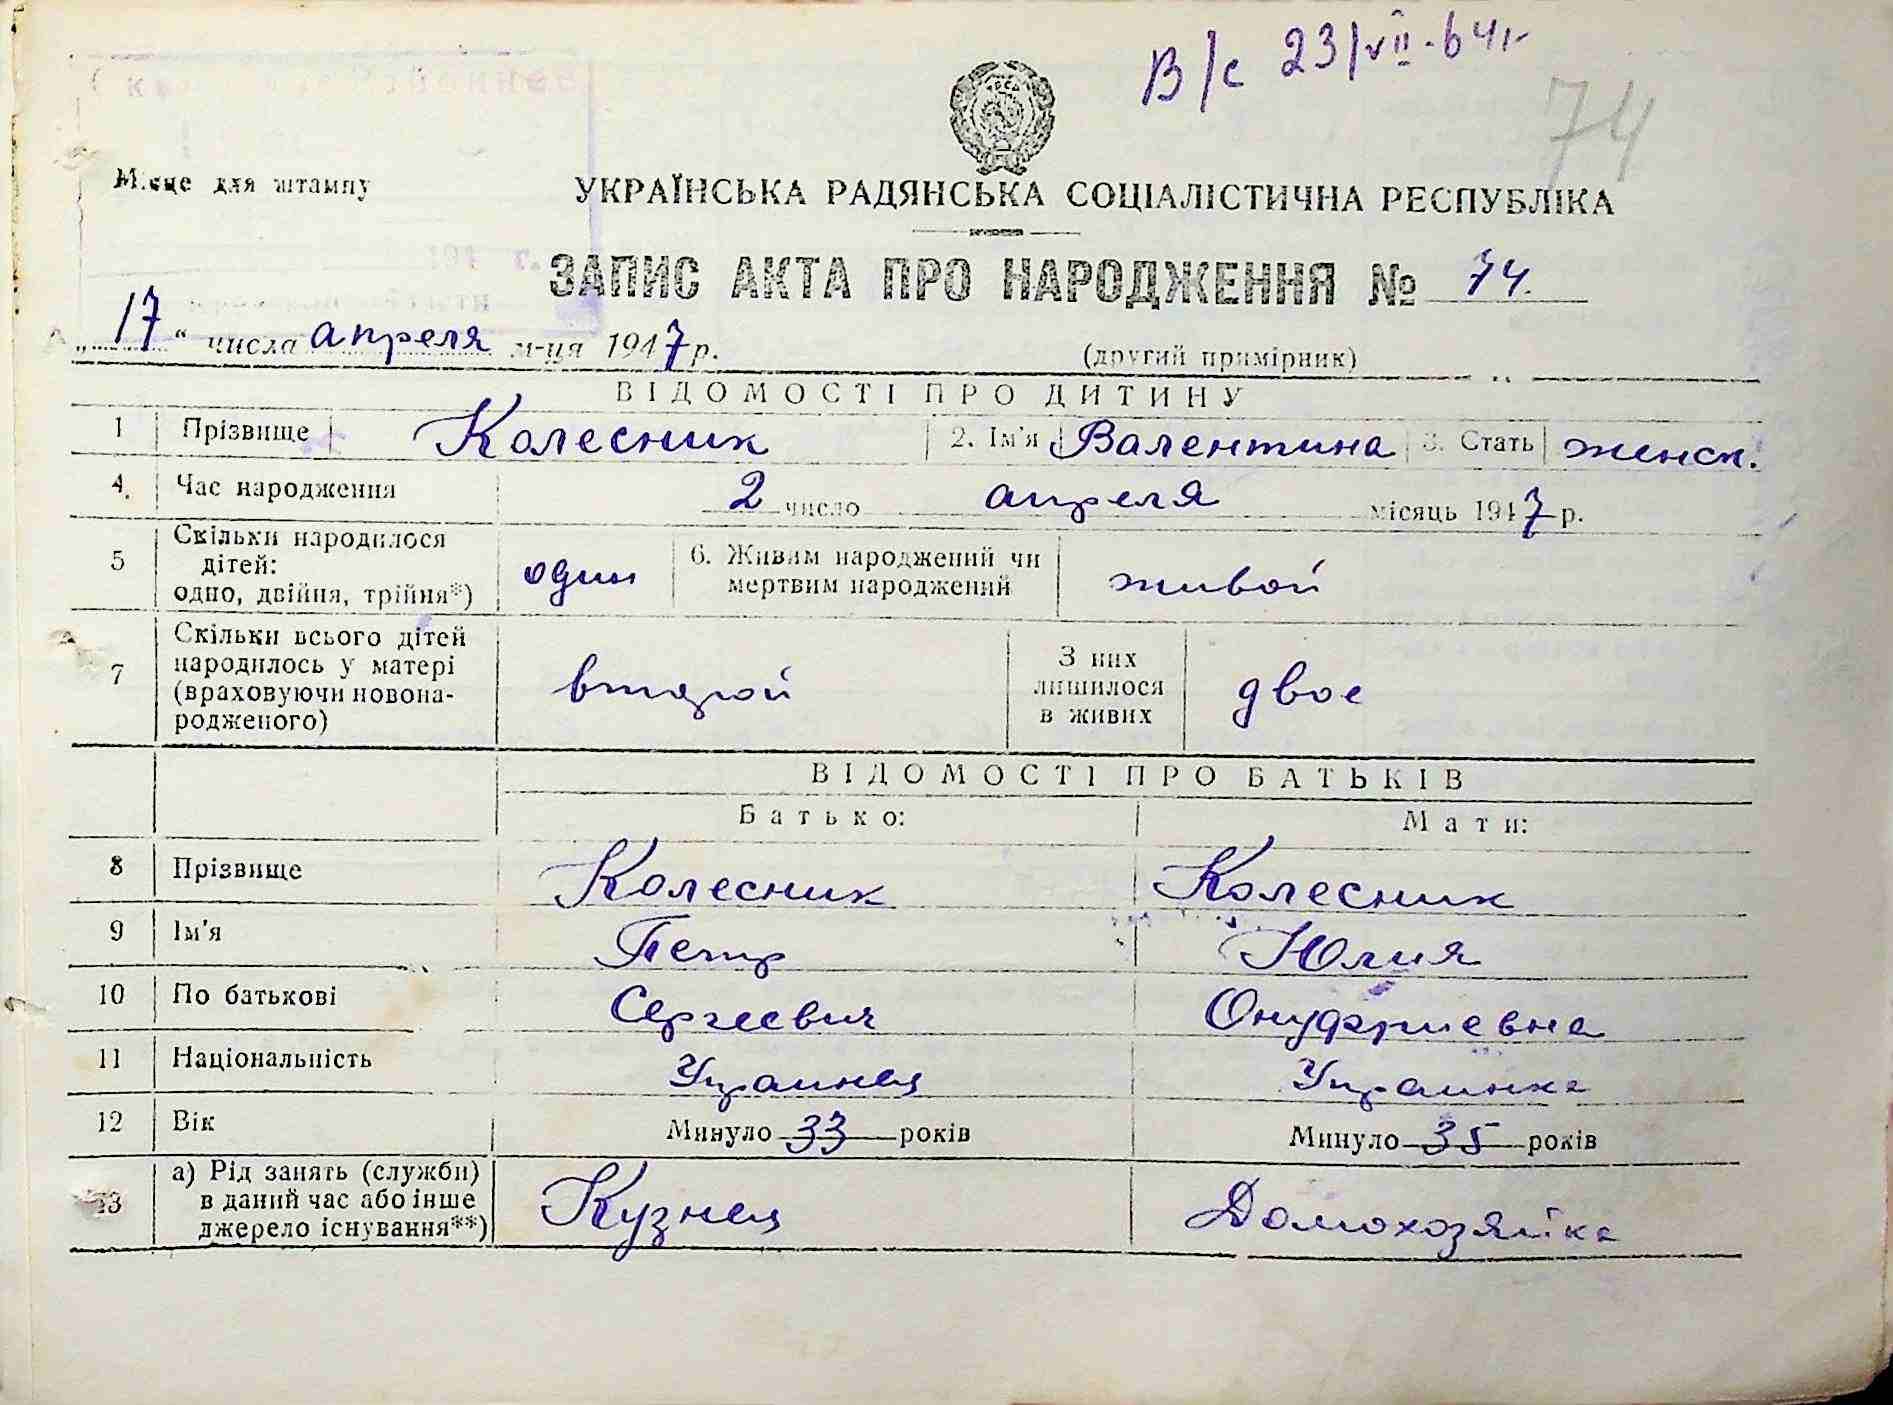 В/с 23/VII-64г
74
Місце для штампу
УКРАЇНСЬКА РАДЯНСЬКА СОЦІАЛІСТИЧНА РЕСПУБЛІКА
ЗАПИС АКТА ПРО НАРОДЖЕННЯ № 74.
„17“ числа апреля м-ця 1947 р.
(другий примірник)
ВІДОМОСТІ ПРО ДИТИНУ
1 Прізвище Колесник 2. Ім'я Валентина 3. Стать женск.
4. Час народження 2 число апреля місяць 1947 р.
5 Скільки народилося дітей: одно, двійня, трійня*) один 6. Живим народжений чи мертвим народжений живой
7 Скільки всього дітей народилось у матері (враховуючи новонародженого) второй З них лишилося в живих двое
ВІДОМОСТІ ПРО БАТЬКІВ
Батько: Мати:
8 Прізвище Колесник Колесник
9 Ім'я Петр Юлия
10 По батькові Сергеевич Онуфриевна
11 Національність Украинец Украинка
12 Вік Минуло 33 років Минуло 35 років
13 а) Рід занять (служби) в даний час або інше джерело існування**) Кузнец Домохозяйка